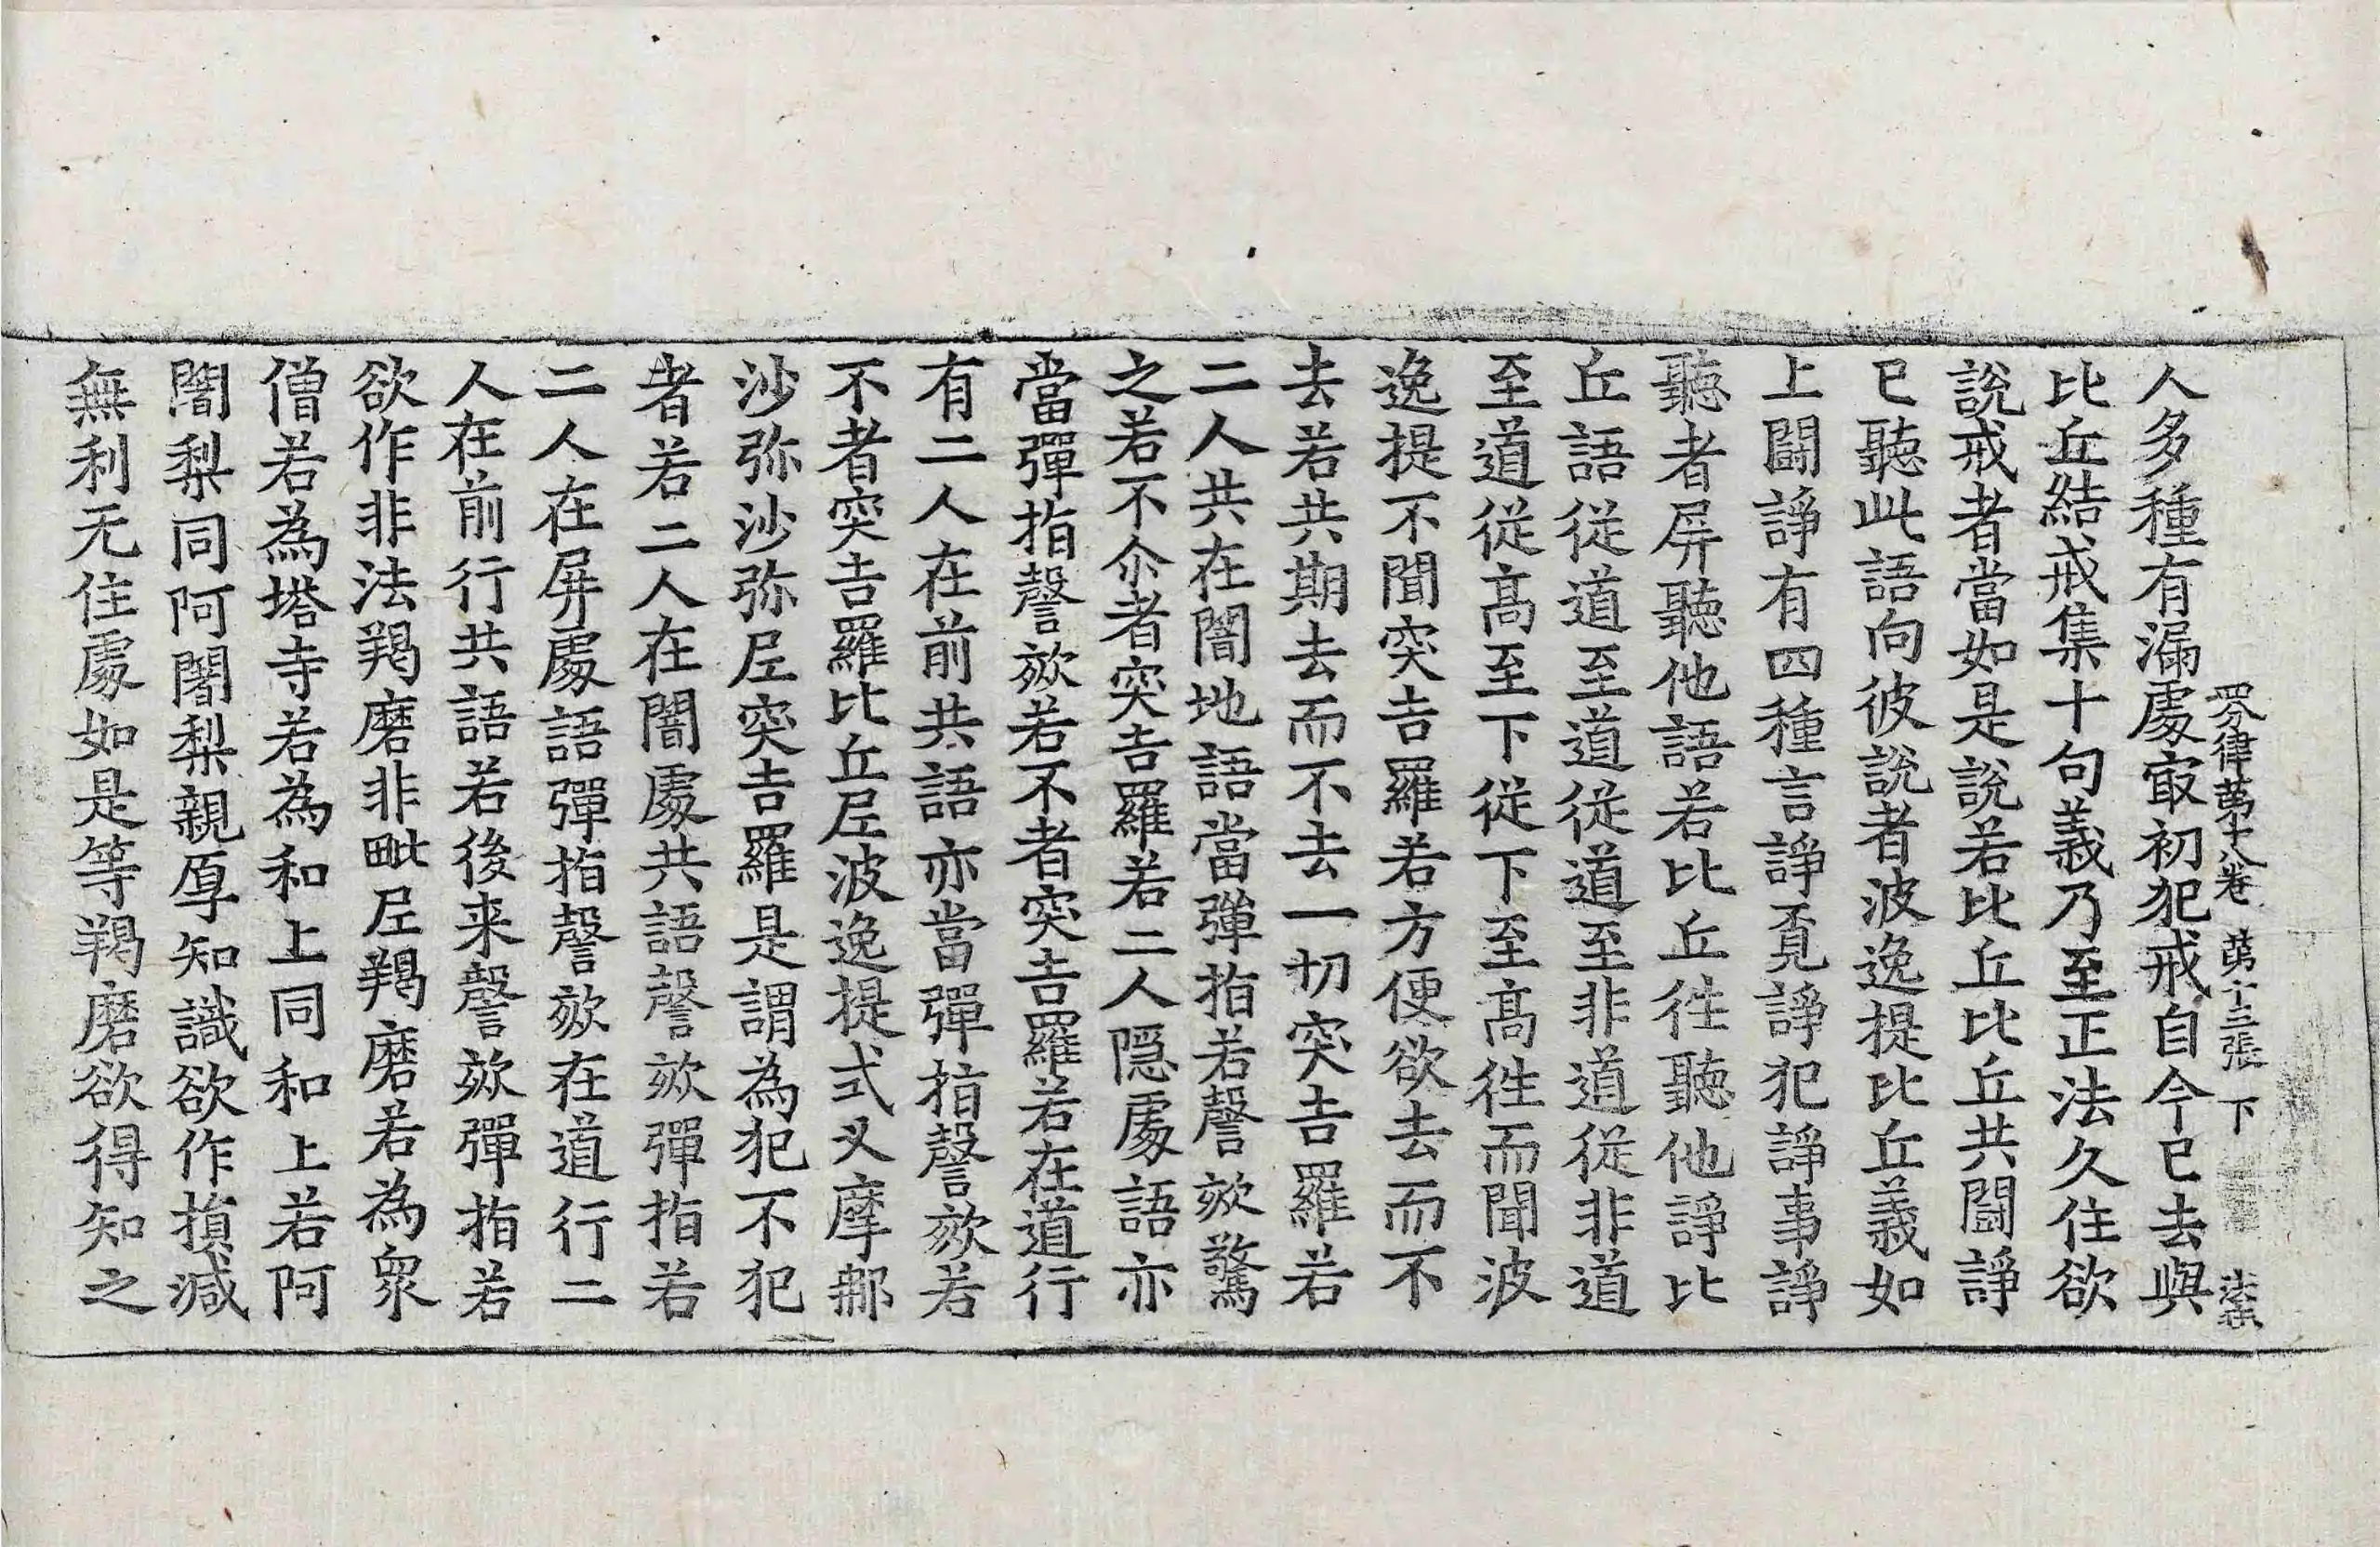 四分律第十八卷 第十三張 下
人多種有漏處㝡初犯戒自今已去與
比丘結戒集十句義乃至正法久住欲
說戒者當如是說若比丘比丘共闘諍
已聽此語向彼說者波逸提比丘義如
上闘諍有四種言諍覔諍犯諍事諍
聽者屏聽他語若比丘徃聽他諍比
丘語從道至道從道至非道從非道
至道從髙至下從下至髙徃而聞波
逸提不聞突吉羅若方便欲去而不
去若共期去而不去一切突吉羅若
二人共在闇地語當彈指若謦欬驚
之若不尒者突吉羅若二人隠處語亦
當彈指謦欬若不者突吉羅若在道行
有二人在前共語亦當彈指謦欬若
不者突吉羅比丘尼波逸提式叉摩那
沙弥沙弥尼突吉羅是謂為犯不犯
者若二人在闇處共語謦欬彈指若
二人在屏處語彈指謦欬在道行二
人在前行共語若後来謦欬彈指若
欲作非法羯磨非毗尼羯磨若為衆
僧若為塔寺若為和上同和上若阿
闍梨同阿闍梨親厚知識欲作損減
無利无住處如是等羯磨欲得知之